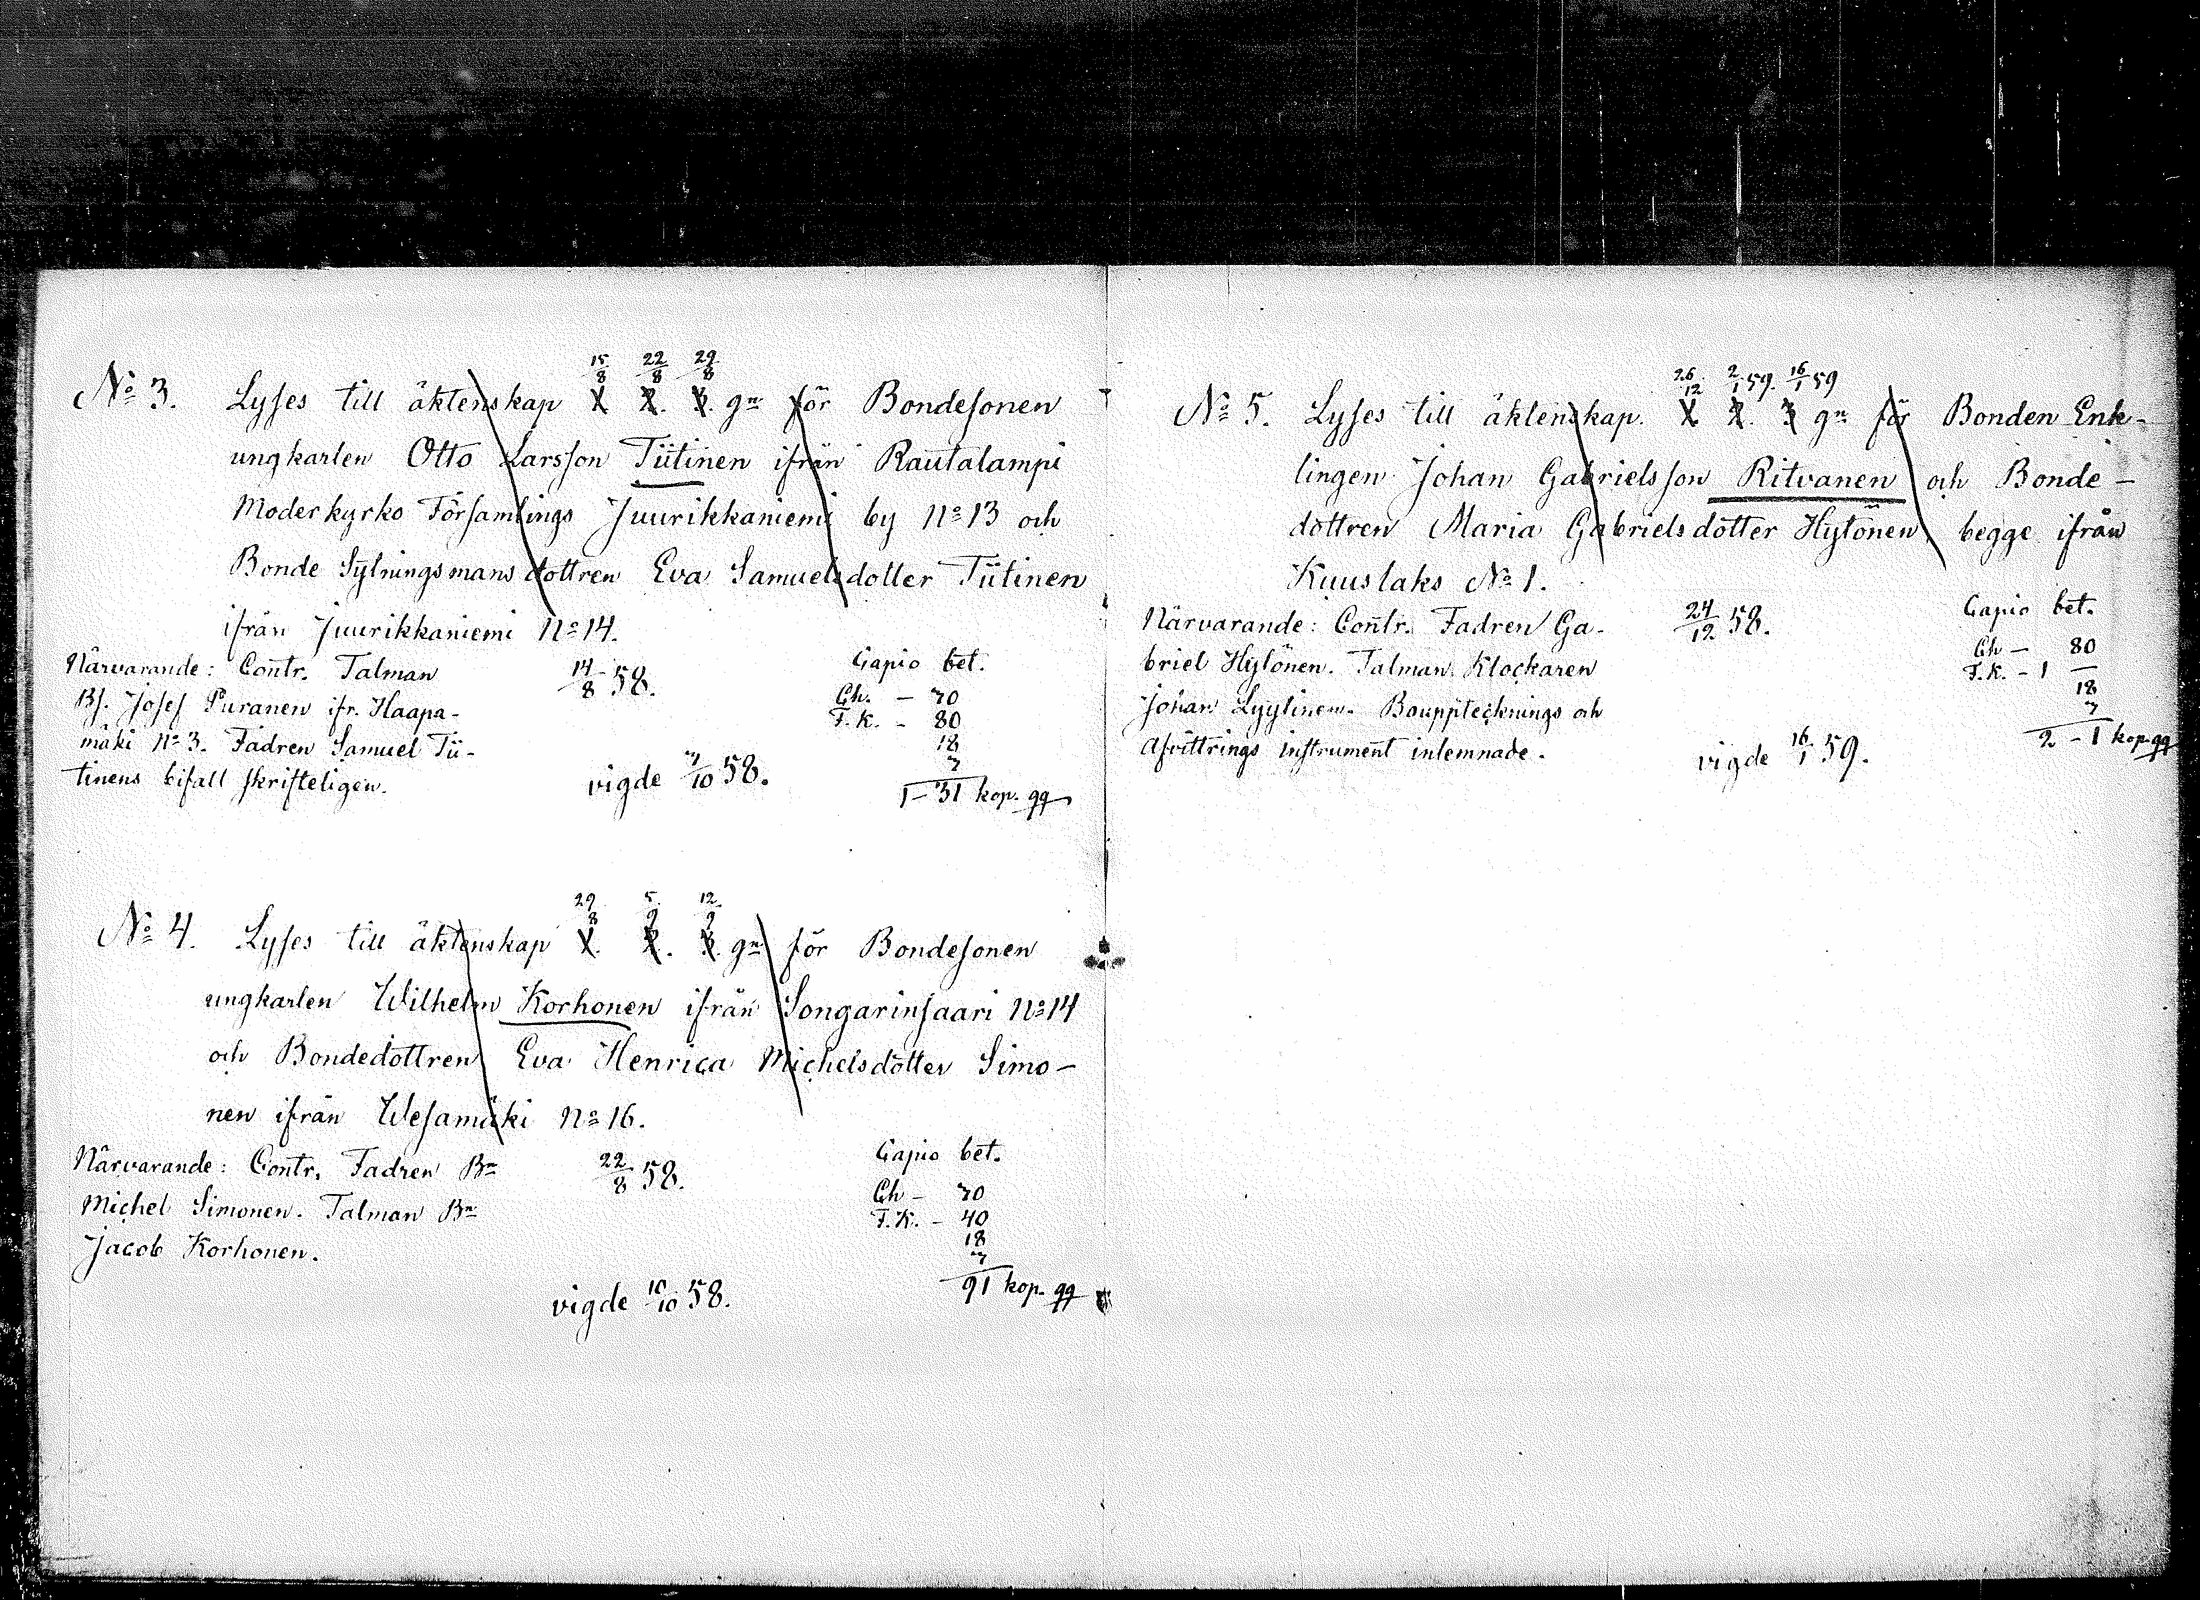 15/8 22/8 29/8
No 3. Lyses till äktenskap 1. 2. 3. gn för Bondesonen
ungkarlen Otto Larsson Tiitinen ifrån Rautalampi
Moderkyrko Församlings Juurikkaniemi by No 13 och
Bonde Sytningsmans dottren Eva Samuelsdotter Tiitinen
ifrån Juurikkaniemi No 14.
Närvarande: Contr. Talman 14/8 58. Capio bet.
Bs. Josef Puranen ifr. Haapa- Ch. - 70
mäki No 3. Fadren Samuel Tii- F.K. - 80
tinens bifall skrifteligen. 18
7
vigde 7/10 58. 1-31 kop. gg
29/8 5/9 12/9
No 4. Lyses till äktenskap 1. 2. 3. gn för Bondesonen
ungkarlen Wilhelm Korhonen ifrån Songarinsaari No 14
och Bondedottren Eva Henrica Michelsdotter Simo-
nen ifrån Wesamäki No 16.
Närvarande: Contr. Fadren Bn 22/8 58. Capio bet.
Michel Simonen. Talman Bn Ch - 70
Jacob Korhonen. F.K. - 40
18
7
vigde 10/10 58. 91 kop. gg
26/12 2/1 59. 16/1 59
No 5. Lyses till äktenskap. 1. 2. 3 gn för Bonden Enk-
lingen Johan Gabrielsson Ritvanen och Bonde-
dottren Maria Gabrielsdotter Hytönen begge ifrån
Kuuslaks No 1.
Närvarande: Contr. Fadren Ga- 24/12 58. Capio bet.
briel Hytönen. Talman Klockaren Ch - 80
Johan Lyytinen. Bouppteknings och F.K. - 1 —
Afvittrings instrument inlemnade. 18
7
vigde 16/1 59. 2 - 1 kop. gg